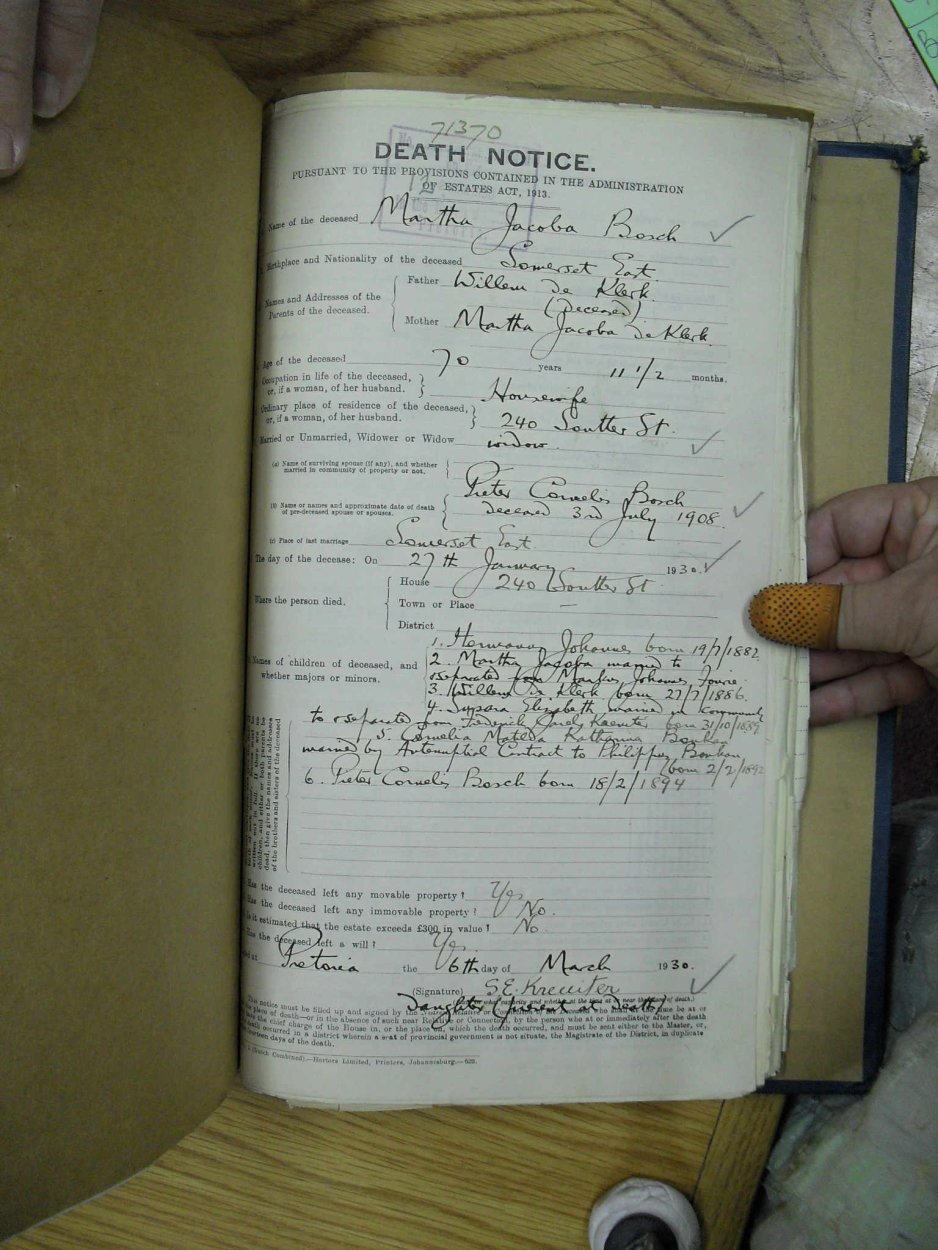 71370
DEATH NOTICE.
PURSUANT TO THE PROVISIONS CONTAINED IN THE ADMINISTRATION
OF ESTATES ACT, 1913.
Name of the deceased Martha Jacoba Bosch
Birthplace and Nationality of the deceased Somerset East
Names and Addresses of the Parents of the deceased.
Father Willem De Klerk
(deceased)
Mother Martha Jacoba De Klerk
Age of the deceased 70 years 11 1/2 months.
Occupation in life of the deceased,
or, if a woman, of her husband. Housewife
Ordinary place of residence of the deceased,
or, if a woman, of her husband. 240 Soutter St.
Married or Unmarried, Widower or Widow widow
(a) Name of surviving spouse (if any), and whether
married in community of property or not.
(b) Name or names and approximate date of death
of pre-deceased spouse or spouses.
Pieter Cornelis Bosch
deceased 3rd July 1908.
(c) Place of last marriage Somerset East
The day of the decease: On 27th January 1930.
Where the person died.
House 240 Soutter St
Town or Place —
District
Names of children of deceased, and
whether majors or minors.
1. Hermanus Johannes born 19/7/1882
2. Martha Jacoba married to
separated from Markus Johannes Fourie
3. Willem De Klerk born 27/7/1886.
4. Susara Elizabeth married in community
to & separated from Frederick Karel Kreuiter born 31/10/1889
5. Cornelia Matilda Katharina
married by Antenuptial Contract to Philippus
(born 2/2/1892
6. Pieter Cornelis Bosch born 18/2/1894
children, and either or both parents be
dead, then give the names and addresses
of the brothers and sisters of the deceased
Has the deceased left any movable property? Yes
Has the deceased left any immovable property? No.
Is it estimated that the estate exceeds £300 in value? No.
Has the deceased left a will? Yes.
Pretoria the 6th day of March 1930.
(Signature) S.E. Kreuiter
Daughter present at death
This notice must be filled up and signed by the
place of death—or in the absence of such near Relative or Connection, by the person who at or immediately after the death
the chief charge of the House in, or the place on, which the death occurred, and must be sent either to the Master, or,
death occurred in a district wherein a seat of provincial government is not situate, the Magistrate of the District, in duplicate
days of the death.
Hortors Limited, Printers, Johannesburg.—